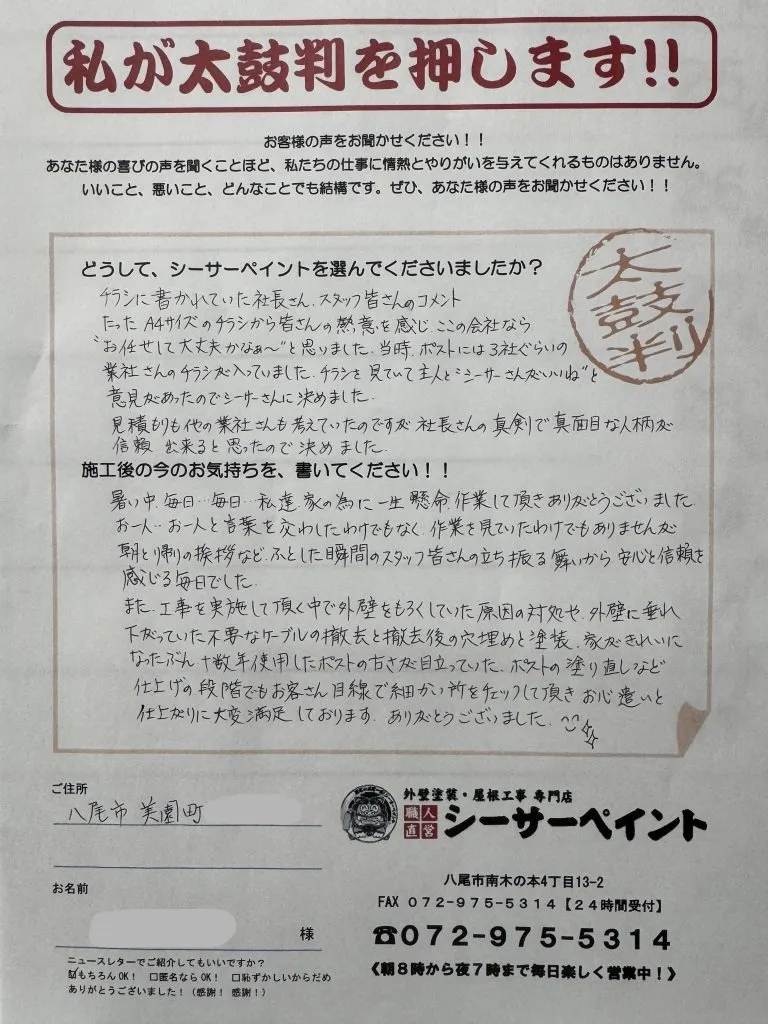 私が太鼓判を押します!!
お客様の声をお聞かせください！！
あなた様の喜びの声を聞くことほど、私たちの仕事に情熱とやりがいを与えてくれるものはありません。
いいこと、悪いこと、どんなことでも結構です。ぜひ、あなた様の声をお聞かせください！！
太鼓判
どうして、シーサーペイントを選んでくださいましたか？
チラシに書かれていた社長さん、スタッフ皆さんのコメント
たった A4サイズのチラシから皆さんの熱意を感じ ここの会社なら
"お任せして大丈夫かなぁ〜"と思いました。当時、ポストには3社ぐらいの
業社さんのチラシが入っていました。チラシを見ていて主人と"シーサーさんがいいね"と
意見があったのでシーサーさんに決めました。
見積もりも他の業社さんも考えていたのですが 社長さんの真剣で真面目な人柄が
信頼 出来ると思ったので決めました。
施工後の今のお気持ちを、書いてください！！
暑い中、毎日…毎日…私達、家の為に一生懸命、作業して頂きありがとうございました。
お一人…お一人と言葉を交わしたわけでもなく、作業を見ていたわけでもありませんが
朝と帰りの挨拶など、ふとした瞬間のスタッフ皆さんの立ち振る舞いから安心と信頼を
感じる毎日でした。
また、工事を実施して頂く中で外壁をもろくしていた原因の対処や、外壁に垂れ
下がっていた不要なケーブルの撤去と撤去後の穴埋めと塗装、家がきれいに
なったぶん十数年使用したポストの古さが目立っていた、ポストの塗り直しなど
仕上げの段階でもお客さん目線で細かい所をチェックして頂きお心遣いと
仕上がりに大変満足しております。ありがとうございました。
ご住所
八尾市 美園町
お名前
様
ニュースレターでご紹介してもいいですか？
☑もちろんOK！ □匿名ならOK！ □恥ずかしいからだめ
ありがとうございました！（感謝！感謝！）
外壁塗装・屋根工事 専門店
職人直営 シーサーペイント
八尾市南木の本4丁目13-2
FAX 072-975-5314【24時間受付】
☎072-975-5314
《朝8時から夜7時まで毎日楽しく営業中！》